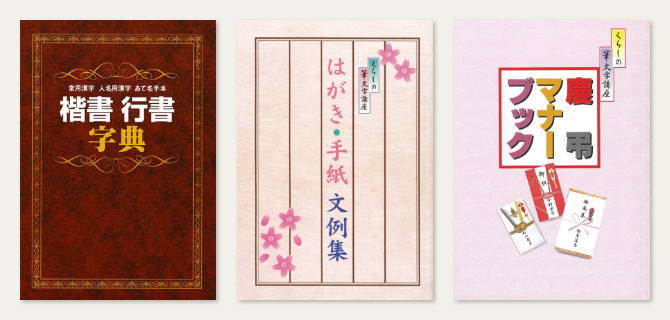 常用漢字 人名用漢字 あて名手本
楷書 行書
字典
くらしの
筆文字講座
はがき・手紙
文例集
くらしの
筆文字講座
慶弔
マナー
ブック